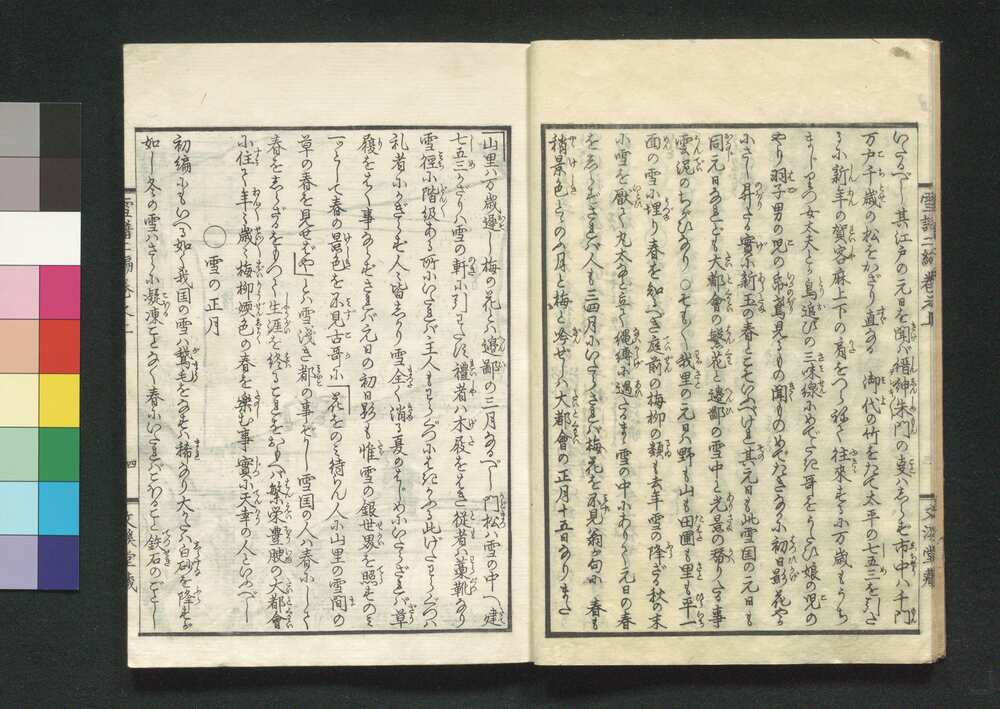 いふべし其江戸の元日を聞ば縉紳朱門の叓はしらず市中は千門
万戸千歳の松をかざり直なる御代の竹をたて太平の七五三を引たるに
新年の賀客麻上下の肩をつらねて往來するに万歳もうち
まじりつ女太夫とか鳥追ひの三味線にめでたき哥をうたひ娘の児の
やり羽子男の児の帋鳶見るもの聞ものめでたきなかに初日影花やか
にさし昇たる實に新玉の春とこそいふべけれ其元日も此雪国の元日も
同元日なれども大都會の繁花と邉鄙の雪中と光景の替りたる事
雲泥のちがひなり○そも〳〵我里の元日は野も山も田圃も里も平一
面の雪に埋り春を知るべき庭前の梅柳の類も去年雪の降ざる秋の末
に雪を厭ひて丸太など立て縄縛に遇たるまゝ雪の中にありて元日の春
をしらずされば人も三四月にいたらざれば梅花を不見翁が句に 春も
稍景色とゝのふ月と梅と吟ぜしは大都會の正月十五日なりまた
山里は万歳遅し梅の花とは邉鄙の三月なるべし門松は雪の中へ建
七五三かざりは雪の軒に引わたす禮者は木屐をはき従者は藁靴なり
雪徑に階級ある所にいたれば主人もわらぐつにはきかゆる此げたわらぐつは
礼者にかぎらず人々皆しかり雪全く消る夏のはじめにいたらざれば草
履をはく事ならずされば元日の初日影も惟雪の銀世界を照すのみ
一ッとして春の景色を不見古哥に「花をのみ待らん人に山里の雪間の
草の春を見せばや」とは雪浅き都の事ぞかし雪国の人は春にして
春をしらざるをもつて生涯を終るこれをおもへば繁栄豊腴の大都會
に住て年々歳々梅柳媆色の春を樂む事實に天幸の人といふべし
○雪の正月
初編にもいへる如く我国の雪は鵞毛をなすは稀なり大かたは白砂を降すが
如し冬の雪はさらに凝凍ことなく春にいたればこほること鉄石のごとし
雪譜二編巻之一
四
文溪堂藏